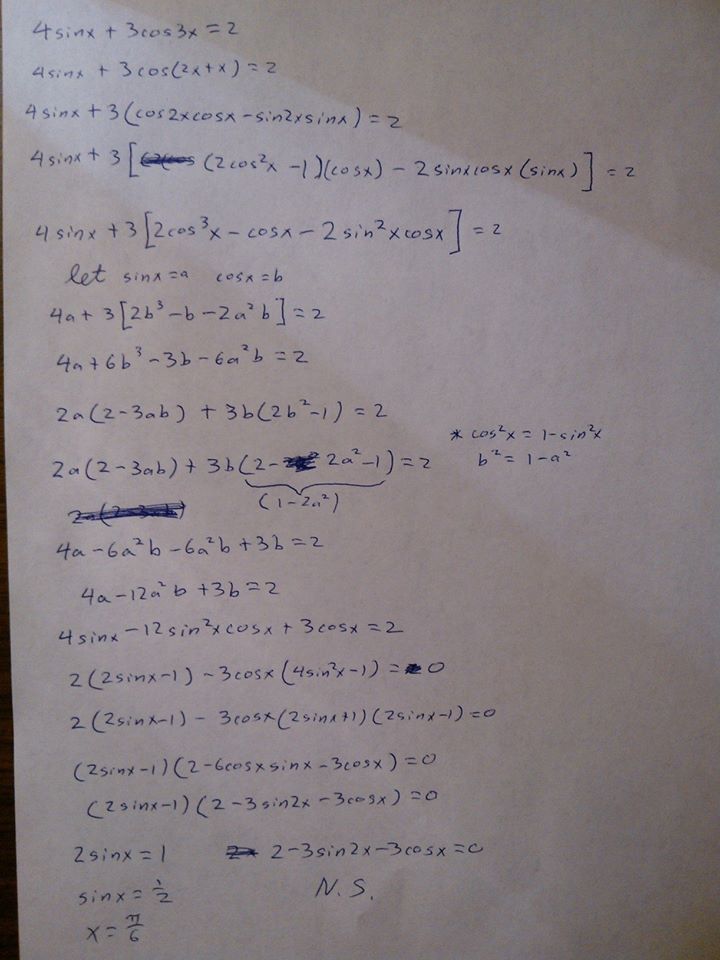 4sinx + 3cos3x = 2
4sinx + 3cos(2x+x) = 2
4sinx + 3(cos2xcosx - sin2xsinx) = 2
4sinx + 3[(2cos²x - 1)(cosx) - 2sinxcosx(sinx)] = 2
4sinx + 3[2cos³x - cosx - 2sin²xcosx] = 2
let sinx = a cosx = b
4a + 3[2b³ - b - 2a²b] = 2
4a + 6b³ - 3b - 6a²b = 2
2a(2-3ab) + 3b(2b²-1) = 2
* cos²x = 1-sin²x
2a(2-3ab) + 3b(2- 2a²-1) = 2
b² = 1-a²
(1-2a²)
4a - 6a²b - 6a²b + 3b = 2
4a - 12a²b + 3b = 2
4sinx - 12sin²xcosx + 3cosx = 2
2(2sinx-1) - 3cosx(4sin²x-1) = 0
2(2sinx-1) - 3cosx(2sinx+1)(2sinx-1) = 0
(2sinx-1)(2-6cosxsinx-3cosx) = 0
(2sinx-1)(2-3sin2x-3cosx) = 0
2sinx = 1 2-3sin2x-3cosx = 0
sinx = ½ N.S.
x = π/6